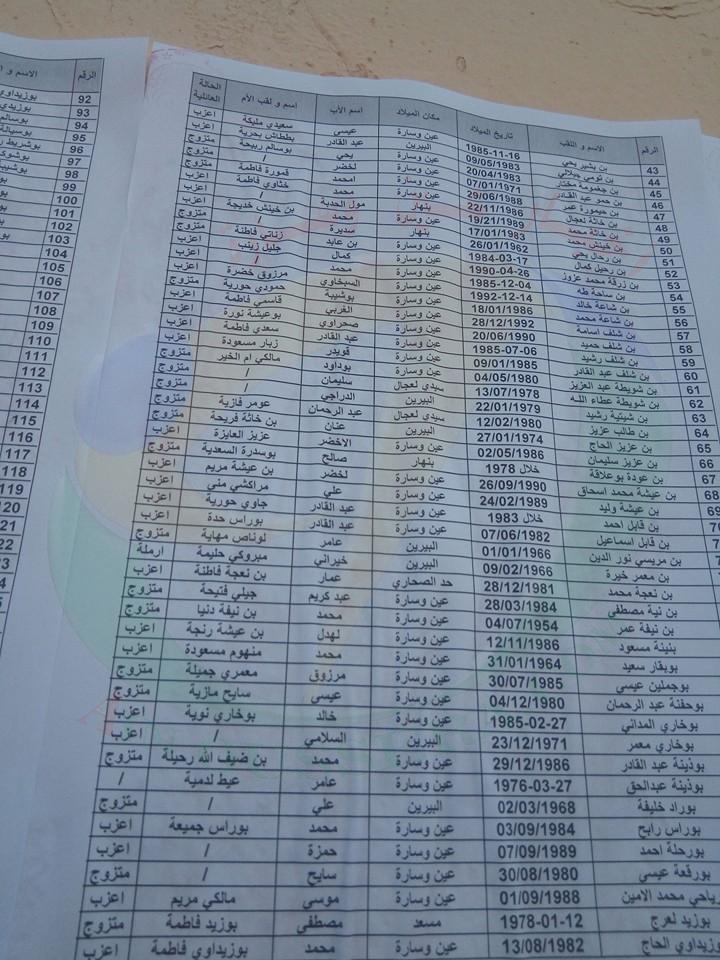 الرقم
92 بوزيداوي
93 بوزيدي
94 بوسالم
95 بوسيالة
96 بوشريط
97 بوشوك
98 بوشيب
99
100
101
102
103
104
105
106
107
108
109
110
111
112
113
114
115
116
117
118
119
120
الرقم الاسم و اللقب تاريخ الميلاد مكان الميلاد اسم الأب اسم و لقب الأم الحالة العائلية
43 بن بشير يحي 1985-11-16 عين وسارة عيسى سعيدي مليكة اعزب
44 بن تومي جيلالي 09/05/1983 البيرين عبد القادر بطاش بحرية اعزب
45 بن جغمومة مختار 20/04/1983 عين وسارة يحي بوسالم ربيحة متزوج
46 بن حمو عبد القادر 07/01/1971 عين وسارة لخضر / متزوج
47 بن حيمورة عمر 29/06/1988 عين وسارة امحمد قمورة فاطمة
48 بن خاثة لعجال 22/11/1986 عين وسارة محمد خثاوي فاطمة اعزب
49 بن خاثة محمد 19/21/1989 بنهار مول الحدبة /
50 بن خينش محمد 17/01/1983 عين وسارة محمد بن خينش خديجة اعزب
51 بن رحال يحي 26/01/1962 بنهار سديرة / متزوج
52 بن رحيل كمال 1984-03-17 عين وسارة بن عايد زناتي فاطنة
53 بن زرقة محمد عزوز 1990-04-26 عين وسارة كمال جليل زينب اعزب
54 بن ساحة طه 1985-12-04 عين وسارة محمد / اعزب
55 بن شاعة خالد 1992-12-14 عين وسارة السبخاوي مرزوق خضرة اعزب
56 بن شاعة محمد 18/01/1986 عين وسارة بوشيبة حمودي حورية متزوج
57 بن شلف اسامة 28/12/1992 عين وسارة الغربي قاسمي فاطمة اعزب
58 بن شلف حميد 20/06/1990 عين وسارة صحراوي بوعيشة نورة اعزب
59 بن شلف رشيد 1985-07-06 عين وسارة عبد القادر سعدي فاطمة اعزب
60 بن شلف عبد القادر 09/01/1985 عين وسارة قويدر زبار مسعودة اعزب
61 بن شويطة عبد العزيز 04/05/1980 عين وسارة بوداود مالكي ام الخير متزوج
62 بن شويطة عطاء الله 13/07/1978 سيدي لعجال سليمان / اعزب
63 بن شيتية رشيد 22/01/1979 البيرين الدراجي / متزوج
64 بن طالب عزيز 12/02/1980 سيدي لعجال عبد الرحمان عومر فازية متزوج
65 بن عزيز الحاج 27/01/1974 البيرين عنان بن خاثة فريحة اعزب
66 بن عزيز سليمان 02/05/1986 عين وسارة الاخضر عزيز العايزة اعزب
67 بن عودة بوعلاقة خلال 1978 بنهار صالح بوسدرة السعدية متزوج
68 بن عيشة محمد اسحاق 26/09/1990 عين وسارة لخضر بن عيشة مريم اعزب
69 بن عيشة وليد 24/02/1989 عين وسارة علي مراكشي مني اعزب
بن قابل احمد خلال 1983 عين وسارة عبد القادر جاوي حورية متزوج
بن قابل اسماعيل 07/06/1982 عين وسارة عبد القادر بوراس حدة اعزب
بن مريسي نور الدين 01/01/1966 البيرين عامر لوناص مهاية متزوج
بن معمر خيرة 09/02/1966 البيرين خيراني مبروكي حليمة ارملة
بن نعجة محمد 28/12/1981 حد الصحاري عمار بن نعجة فاطنة اعزب
بن نية مصطفى 28/03/1984 عين وسارة عبد كريم جيلي فتيحة متزوج
بن نيفة عمر 04/07/1954 عين وسارة محمد بن نيفة دنيا متزوج
بنينة مسعود 12/11/1986 عين وسارة لهدل بن عيشة رنجة اعزب
بوبقار سعيد 31/01/1964 عين وسارة محمد منهوم مسعودة اعزب
بوجملين عيسى 30/07/1985 عين وسارة مرزوق معمري جميلة متزوج
بوحفنة عبد الرحمان 04/12/1980 عين وسارة عيسى سايح مازية متزوج
بوخاري المداني 1985-02-27 عين وسارة خالد بوخاري نوية اعزب
بوخاري معمر 23/12/1971 البيرين السلامي / اعزب
بوذينة عبد القادر 29/12/1986 عين وسارة محمد بن ضيف الله رحيلة متزوج
بوذينة عبدالحق 1976-03-27 عين وسارة عامر عيط لدمية /
بوراد خليفة 02/03/1968 البيرين علي / متزوج
بوراس رابح 03/09/1984 عين وسارة محمد بوراس جميعة اعزب
بورحلة احمد 07/09/1989 عين وسارة حمزة / اعزب
بورقعة عيسى 30/08/1980 عين وسارة سايح / متزوج
رياحي محمد الامين 01/09/1988 عين وسارة موسى مالكي مريم اعزب
بوزيد لعرج 1978-01-12 مسعد مصطفى بوزيد فاطمة متزوج
بوزيداوي الحاج 13/08/1982 عين وسارة محمد بوزيداوي فاطمة اعزب